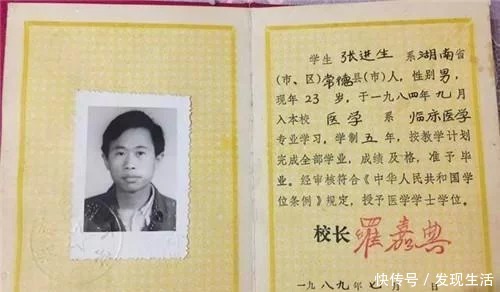 学生 张进生 系湖南省
(市、区)常德县(市)人，性别男，
现年 23 岁，于一九八四年九月
入本校 医学 系 临床医学
专业学习，学制五年，按教学计划
完成全部学业，成绩及格，准予毕
业。经审核符合《中华人民共和国学
位条例》规定，授予医学学士学位。
校长 罗嘉典
一九八九年七月 日
快传号 / 发现生活